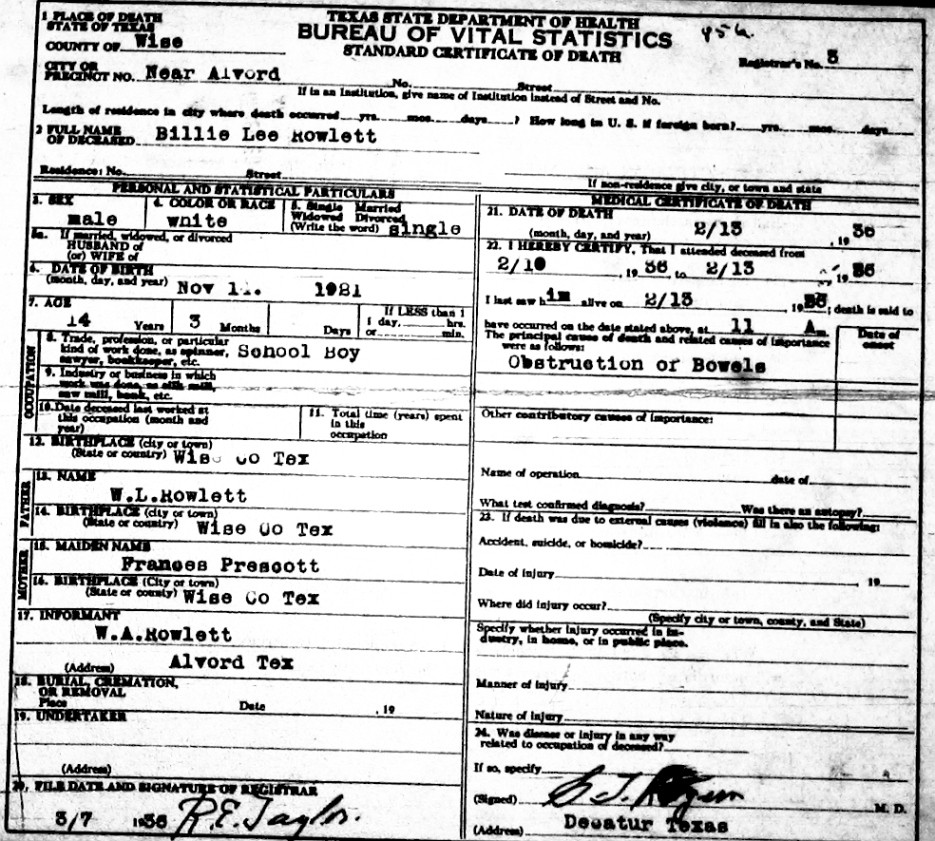 TEXAS STATE DEPARTMENT OF HEALTH
BUREAU OF VITAL STATISTICS
STANDARD CERTIFICATE OF DEATH
Registrar's No. 3
1 PLACE OF DEATH
STATE OF TEXAS
COUNTY OF Wise
CITY OR
PRECINCT NO. Near Alvord No. Street
If in an Institution, give name of Institution instead of Street and No.
Length of residence in city where death occurred yrs. mos. days ? How long in U. S. if foreign born? yrs. mos. days
2 FULL NAME
OF DECEASED Billie Lee Rowlett
Residence: No. Street
If non-residence give city, or town and state
PERSONAL AND STATISTICAL PARTICULARS
3. SEX
male
4. COLOR OR RACE
white
5. Single Married
Widowed Divorced
(Write the word) single
5a. If married, widowed, or divorced
HUSBAND of
(or) WIFE of
6. DATE OF BIRTH
(month, day, and year) Nov 11. 1981
7. AGE
14 Years 3 Months Days
If LESS than 1
1 day, hrs.
or min.
OCCUPATION
8. Trade, profession, or particular
kind of work done, as spinner, School Boy
sawyer, bookkeeper, etc.
9. Industry or business in which
work was done, as silk mill,
saw mill, bank, etc.
10. Date deceased last worked at
this occupation (month and
year)
11. Total time (years) spent
in this
occupation
12. BIRTHPLACE (city or town)
(State or country) Wise Co Tex
FATHER
13. NAME
W.L.Rowlett
14. BIRTHPLACE (city or town)
(State or country) Wise Co Tex
MOTHER
15. MAIDEN NAME
Frances Prescott
16. BIRTHPLACE (City or town)
(State or country) Wise Co Tex
17. INFORMANT
W.A.Rowlett
(Address) Alvord Tex
18. BURIAL, CREMATION,
OR REMOVAL
Place Date , 19
19. UNDERTAKER
(Address)
20. FILE DATE AND SIGNATURE OF REGISTRAR
3/7 1936 R.E. Taylor.
MEDICAL CERTIFICATE OF DEATH
21. DATE OF DEATH
(month, day, and year) 2/13 , 19 36
22. I HEREBY CERTIFY, That I attended deceased from
2/10 , 19 36, to 2/13 , 19 36
I last saw him alive on 2/13 19 36; death is said to
have occurred on the date stated above, at 11 A m.
The principal cause of death and related causes of importance
were as follows:
Date of
onset
Obstruction of Bowels
Other contributory causes of importance:
Name of operation date of
What test confirmed diagnosis? Was there an autopsy?
23. If death was due to external causes (violence) fill in also the following:
Accident, suicide, or homicide?
Date of injury , 19
Where did injury occur?
(Specify city or town, county, and State)
Specify whether injury occurred in in-
dustry, in home, or in public place.
Manner of injury
Nature of injury
24. Was disease or injury in any way
related to occupation of deceased?
If so, specify
(Signed) M. D.
(Address) Decatur Texas